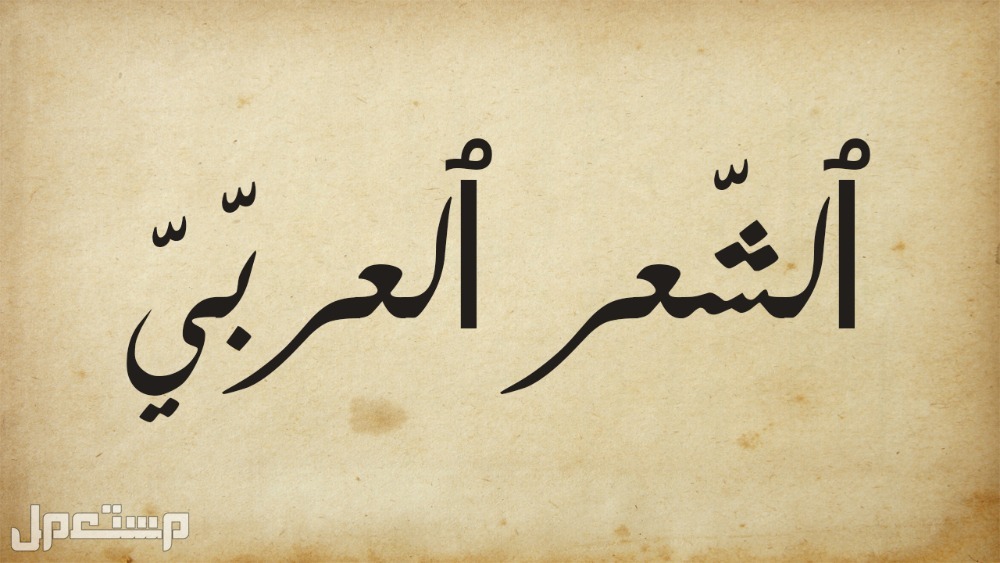 ٱلشّعر ٱلعربّيّ
مستعمل